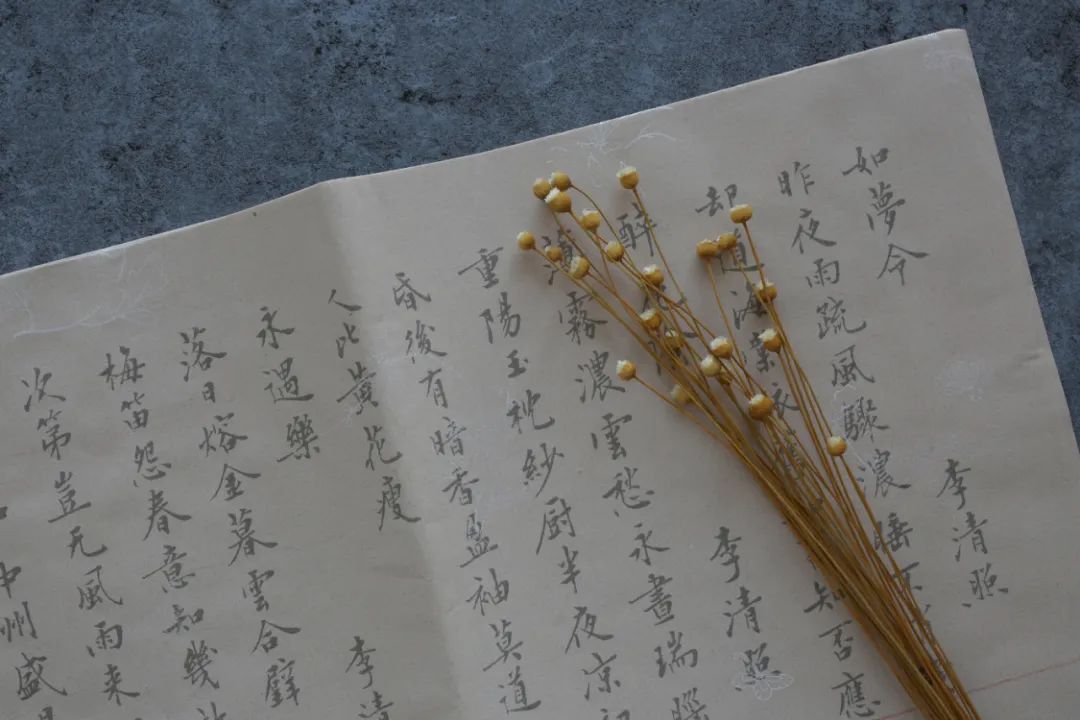 如夢令 李清照
昨夜雨疏風驟濃睡不
却道海棠依 知否應
醉花 李清照
薄霧濃雲愁永晝瑞腦
重陽玉枕紗厨半夜凉初
昏後有暗香盈袖莫道
人比黃花瘦
永遇樂 李清
落日熔金暮雲合璧
梅笛怨春意知幾
次第豈无風雨来
中州盛